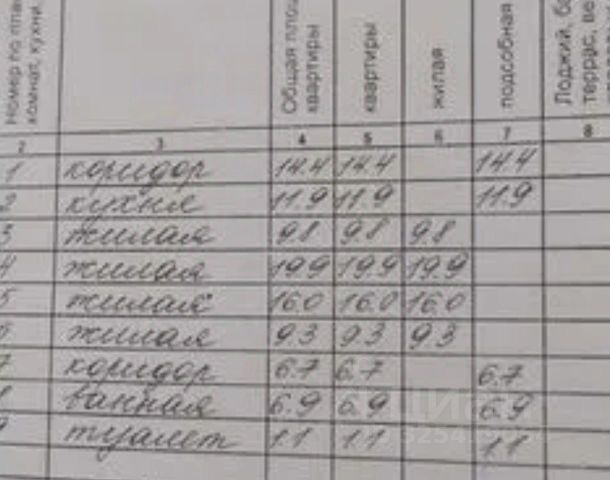 Номер по план
комнат, кухни
Общая площ
квартиры
квартиры
жилая
подсобная
Лоджий, ба
террас, ве
2 3 4 5 6 7 8
1 коридор 14.4 14.4 14.4
2 кухня 11.9 11.9 11.9
3 жилая 9.8 9.8 9.8
4 жилая 19.9 19.9 19.9
5 жилая 16.0 16.0 16.0
6 жилая 9.3 9.3 9.3
7 коридор 6.7 6.7 6.7
8 ванная 6.9 6.9 6.9
9 туалет 1.1 1.1 1.1